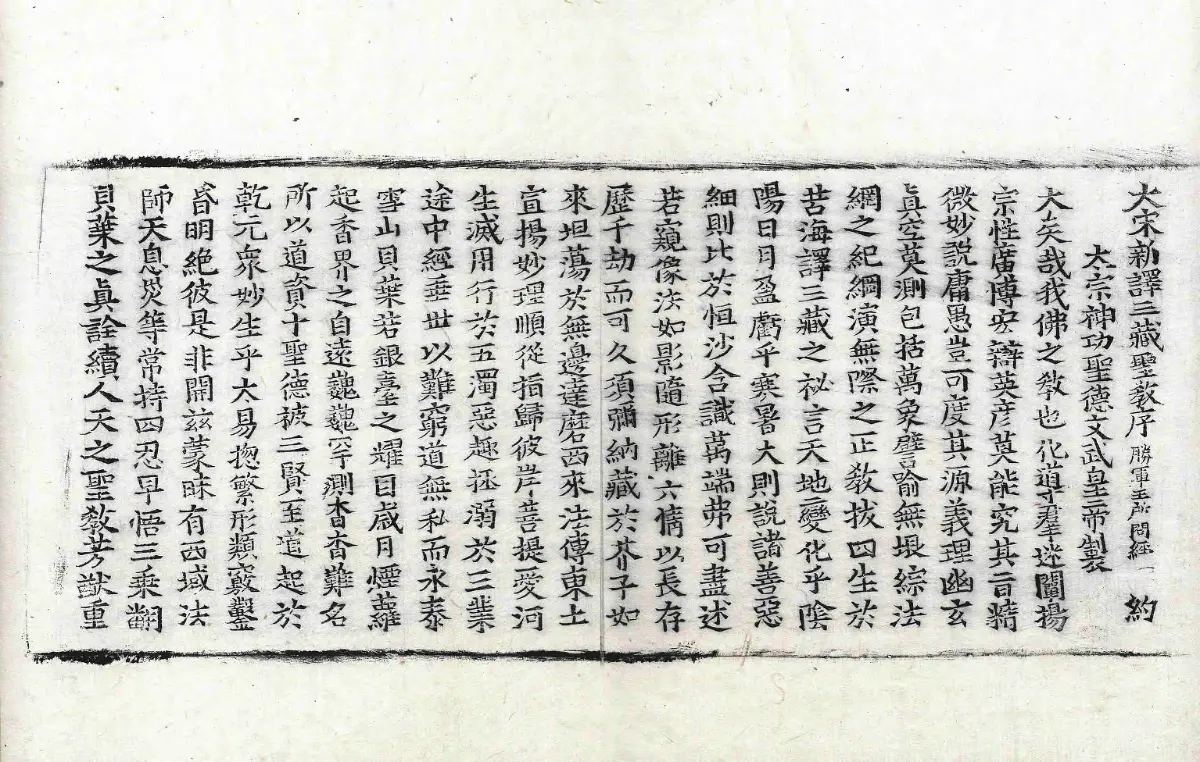 大宋新譯三藏聖教序 勝軍王所問經 一 約
太宗神功聖德文武皇帝製
大矣哉我佛之教也化導羣迷闡揚
宗性廣博宏辯英彦莫能究其旨精
微妙説庸愚豈可度其源義理幽玄
眞空莫測包括萬象譬喻無垠綜法
綱之紀綱演無際之正教拔四生於
苦海譯三藏之祕言天地變化乎陰
陽日月盈虧乎寒暑大則説諸善惡
細則比於恒沙含識萬端弗可盡述
若窺像法如影隨形離六情以長存
歷千劫而可久須彌納藏於芥子如
來坦蕩於無邊達磨西來法傳東土
宣揚妙理順從指歸彼岸菩提愛河
生滅用行於五濁惡趣拯溺於三業
途中經垂世以難窮道無私而永泰
雪山貝葉若銀臺之耀目歲月煙蘿
起香界之自遠巍巍罕測杳杳難名
所以道資十聖德被三賢至道起於
乾元衆妙生乎太易揔繁形類竅鑿
昏明絶彼是非開茲蒙昧有西域法
師天息災等常持四忍早悟三乘翻
貝葉之眞詮續人天之聖教芳猷重